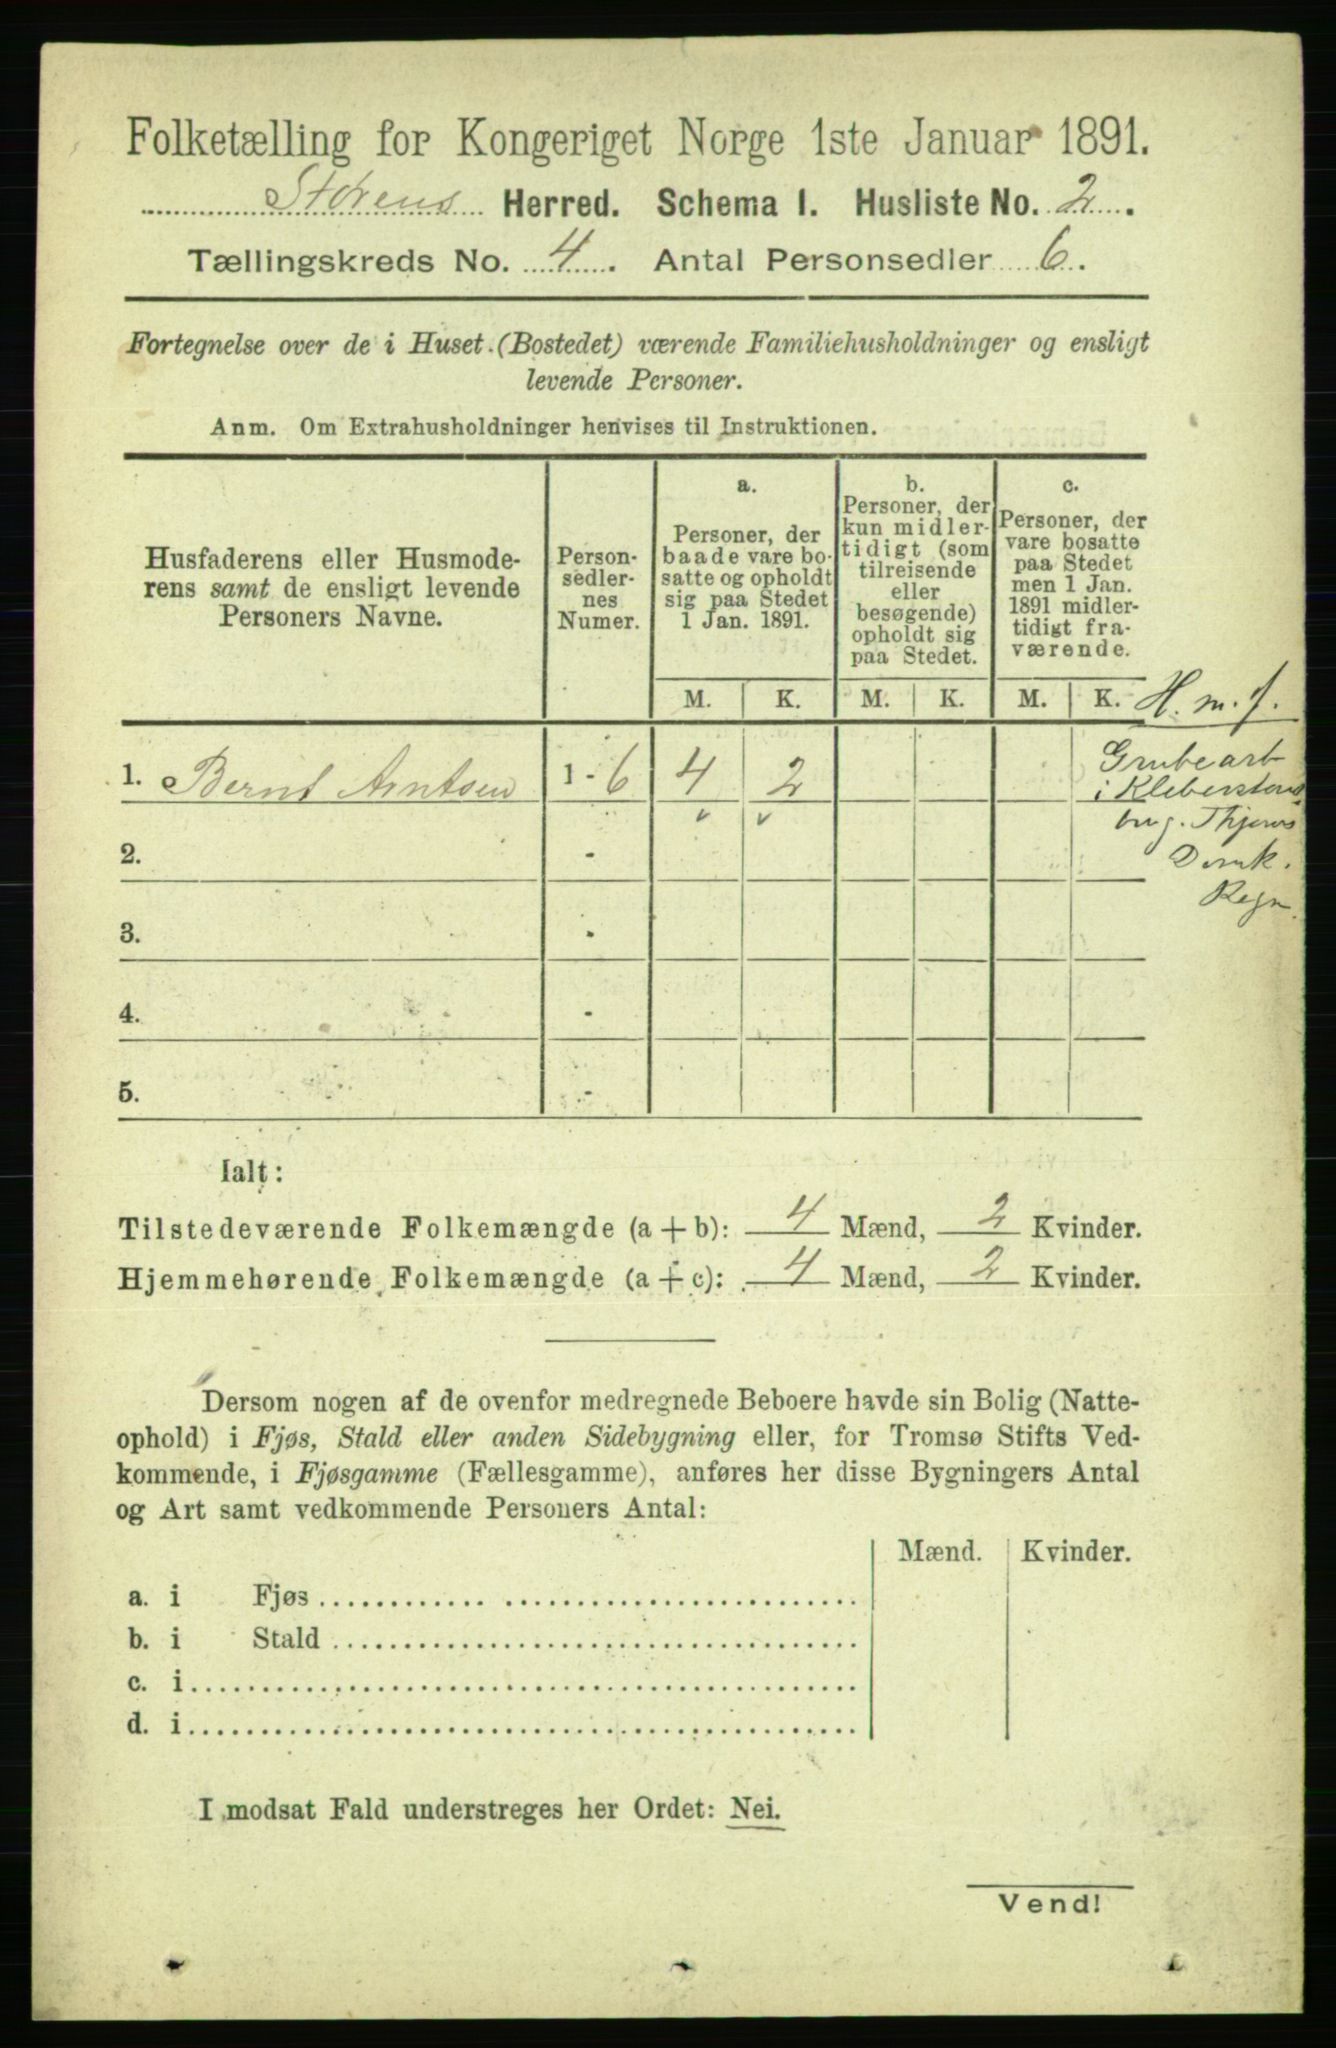 Folketælling for Kongeriget Norge 1ste Januar 1891.
Størens Herred. Schema I. Husliste No. 2.
Tællingskreds No. 4. Antal Personsedler 6.
Fortegnelse over de i Huset (Bostedet) værende Familiehusholdninger og ensligt
levende Personer.
Anm. Om Extrahusholdninger henvises til Instruktionen.
Husfaderens eller Husmode-
rens samt de ensligt levende
Personers Navne.
Person-
sedler-
nes
Numer.
a.
Personer, der
baade vare bo-
satte og opholdt
sig paa Stedet
1 Jan. 1891.
b.
Personer, der
kun midler-
tidigt (som
tilreisende
eller
besøgende)
opholdt sig
paa Stedet.
c.
Personer, der
vare bosatte
paa Stedet
men 1 Jan.
1891 midler-
tidigt fra-
værende.
M. K. M. K. M. K. H. m. f.
1. Bernt Arntsen 1 - 6 4 2
Grubearb
i Klebersten
brug.
2. -
3. -
4. -
5. -
Ialt:
Tilstedeværende Folkemængde (a + b): 4 Mænd, 2 Kvinder.
Hjemmehørende Folkemængde (a + c): 4 Mænd, 2 Kvinder.
Dersom nogen af de ovenfor medregnede Beboere havde sin Bolig (Natte-
ophold) i Fjøs, Stald eller anden Sidebygning eller, for Tromsø Stifts Ved-
kommende, i Fjøsgamme (Fællesgamme), anføres her disse Bygningers Antal
og Art samt vedkommende Personers Antal:
Mænd. Kvinder.
a. i Fjøs
b. i Stald
c. i
d. i
I modsat Fald understreges her Ordet: Nei.
Vend!